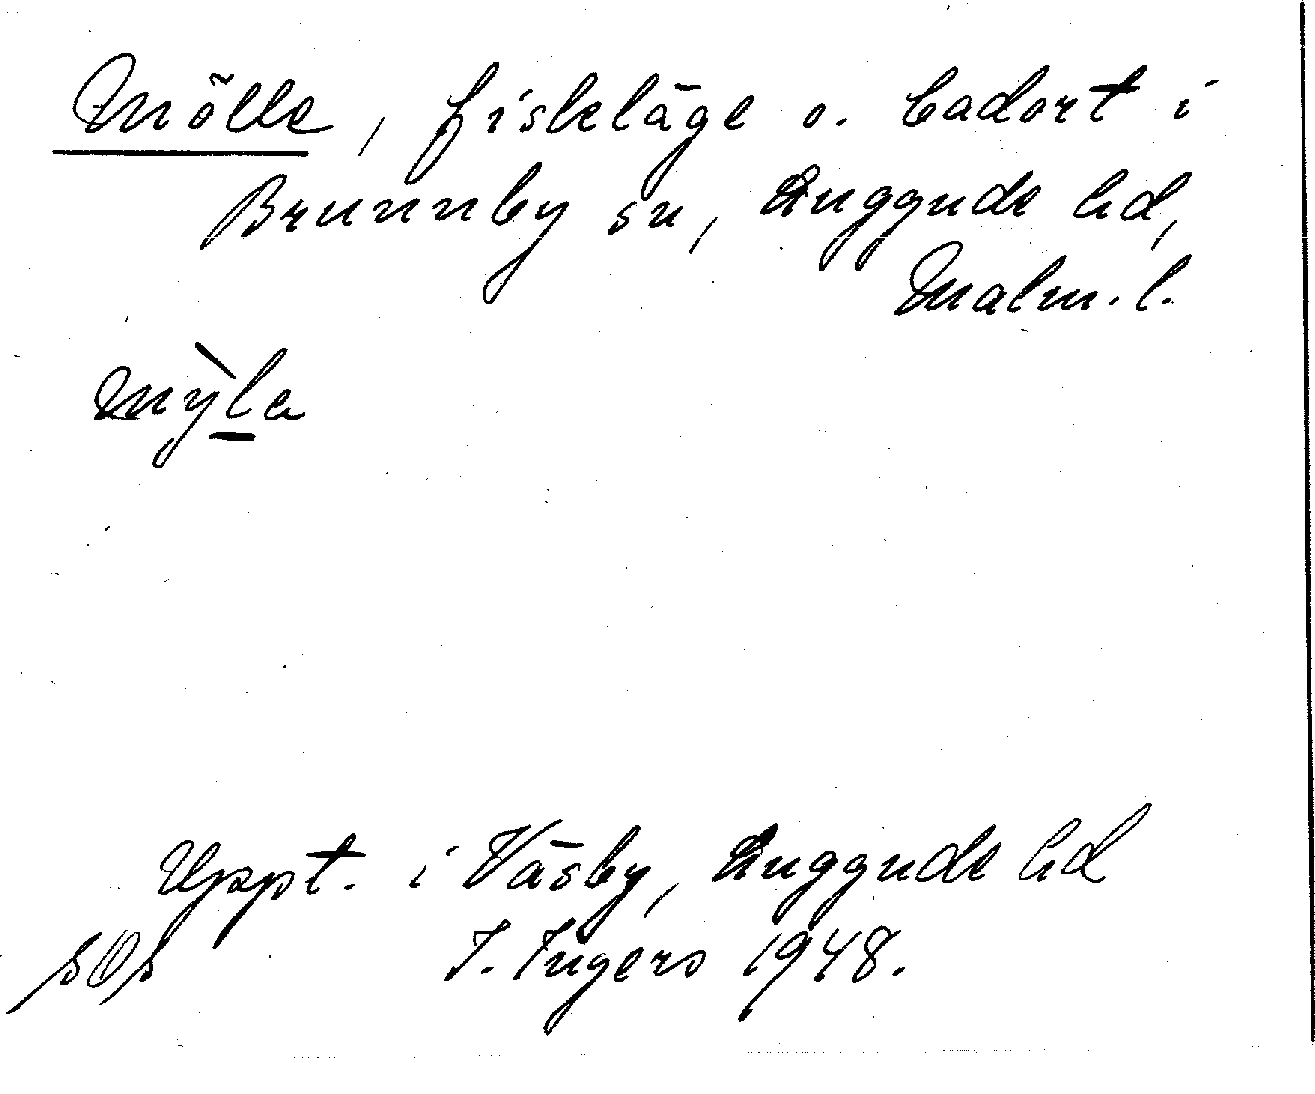 Mölle, fiskeläge o. badort i
Brunnby sn, Luggude hd,
Malm. l.
mỳla
Uppt. i Väsby, Luggude hd
I. Ingers 1948.